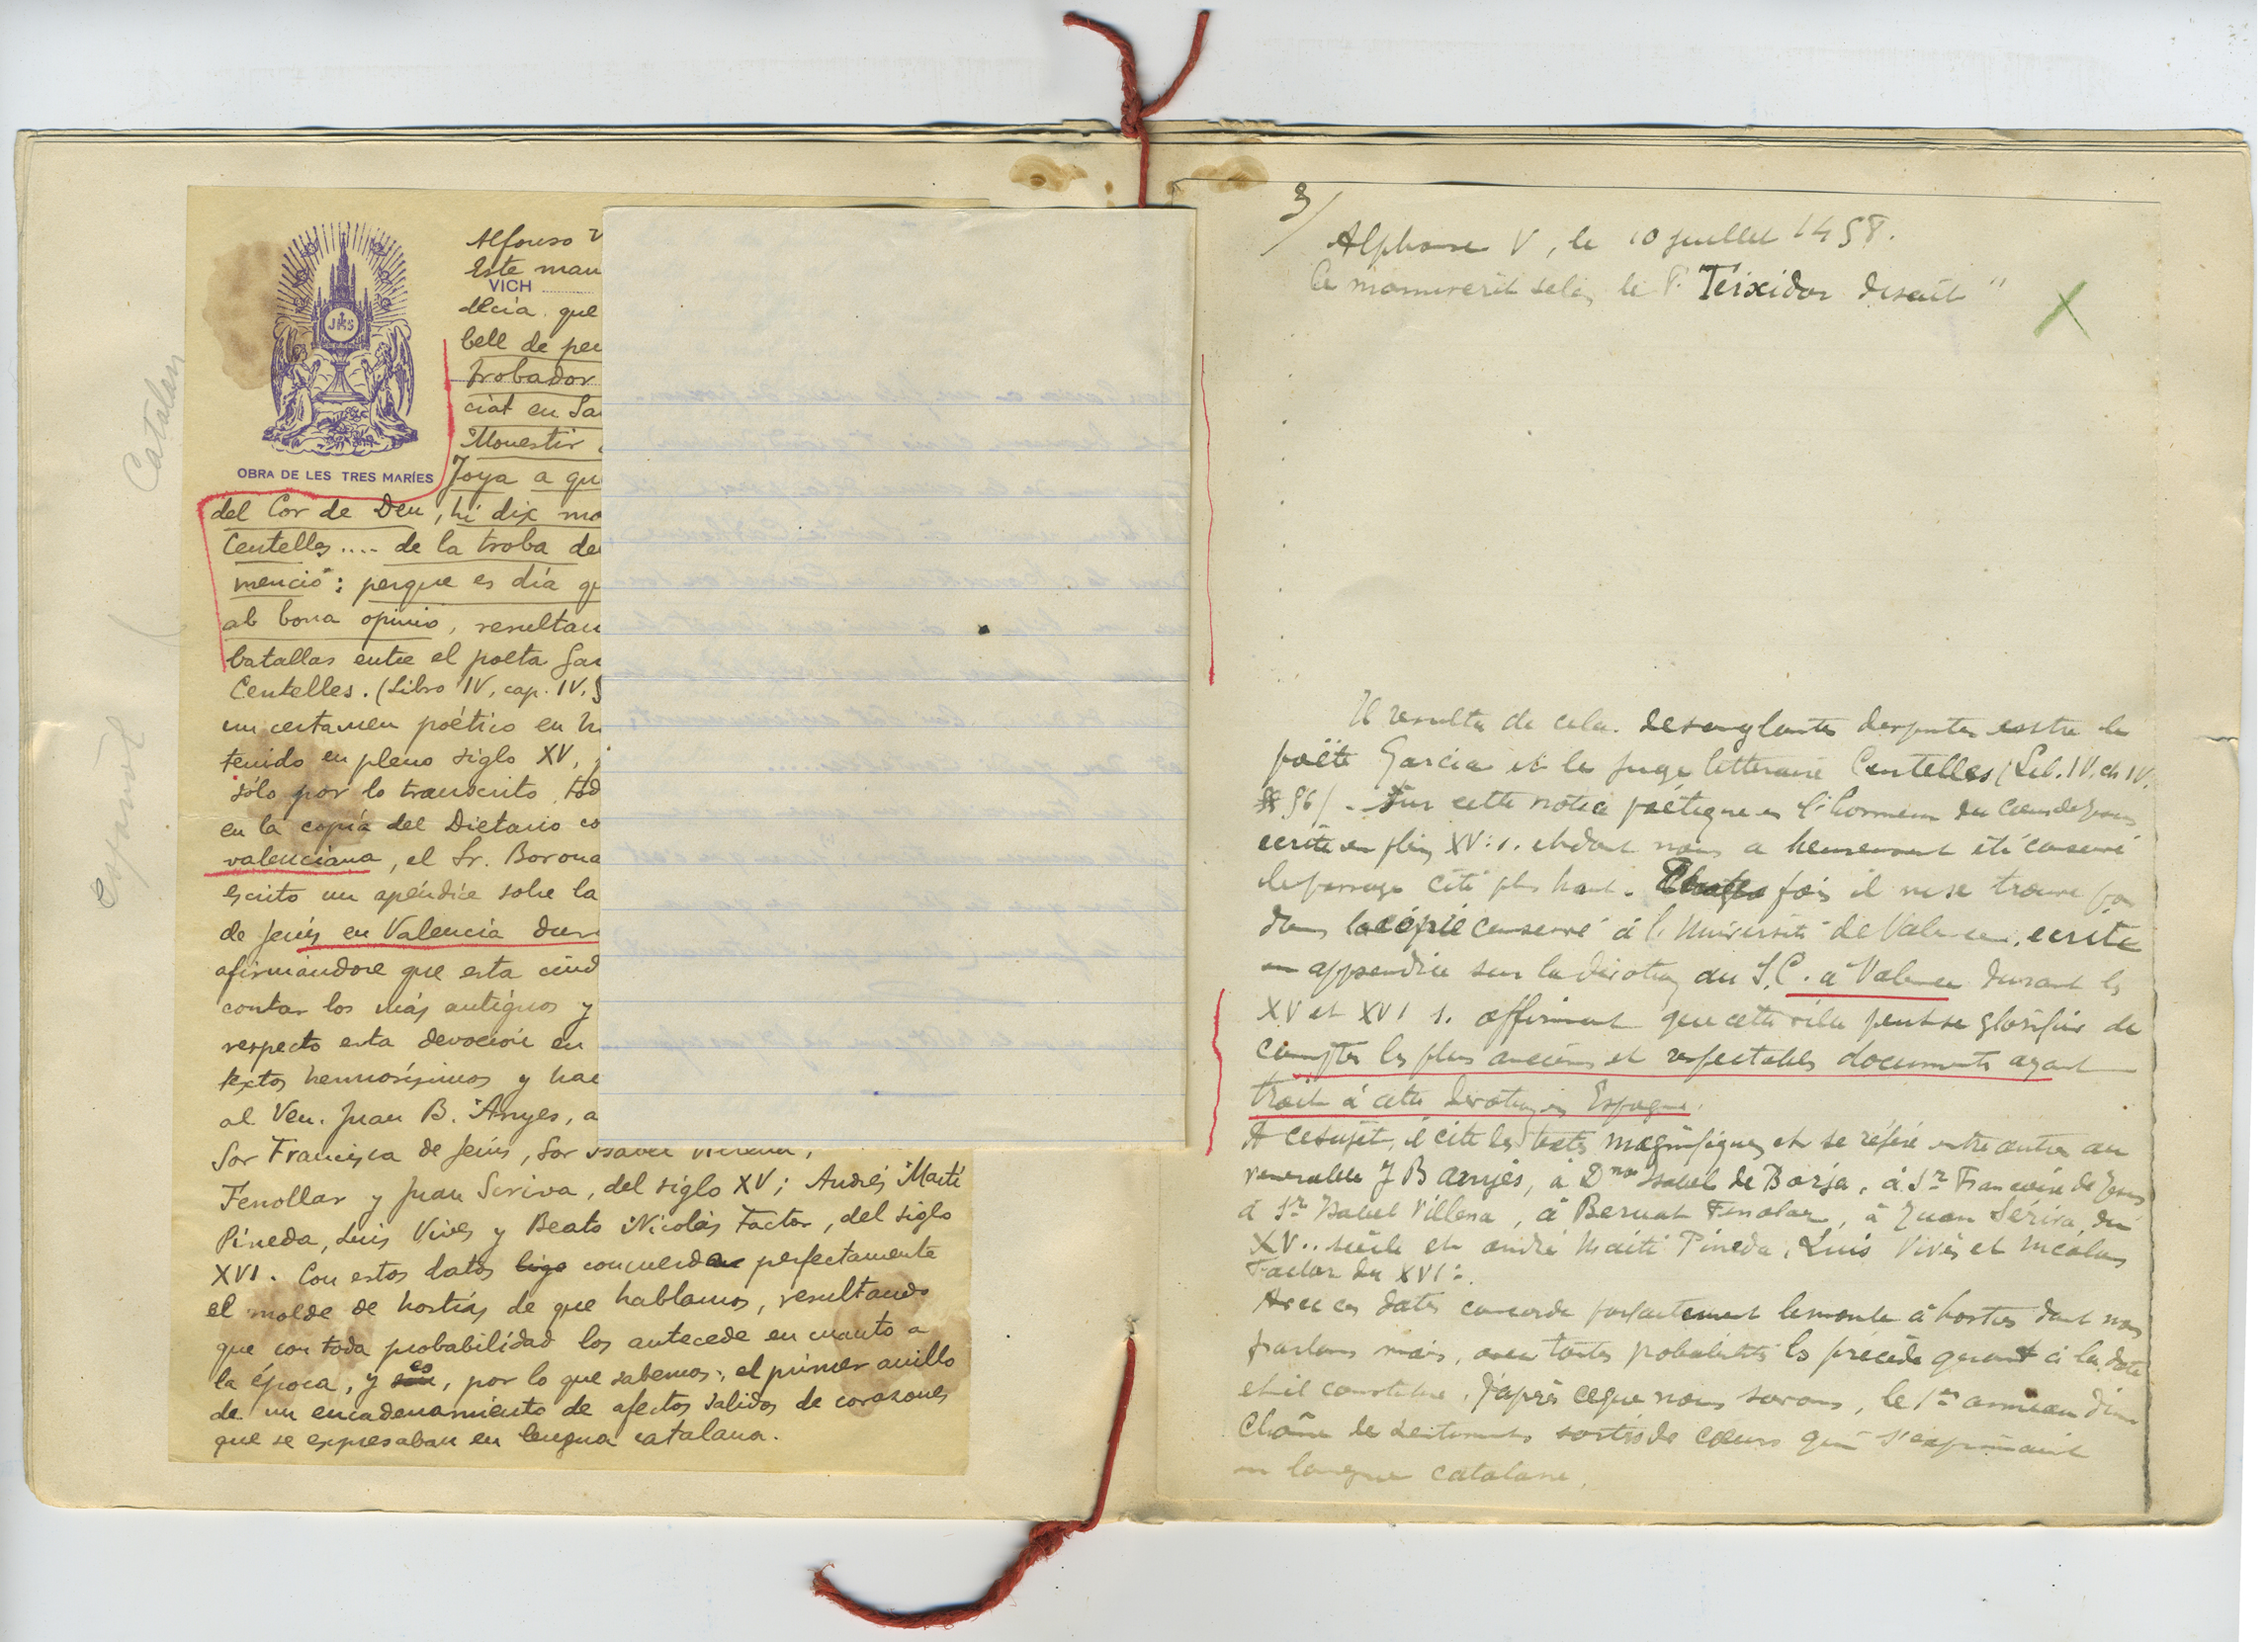 Catalan
español
JHS
OBRA DE LES TRES MARÍES
Alfonso V
Este man
VICH
decía que
bell de per
trobador
ciat en Sa
Monestir
Joya a qu
del Cor de Deu, hi dix mo
Centelles.... de la troba de
menció: perque es día q
ab bona opinio, resultan
batallas entre el poeta Gar
Centelles. (Libro IV, cap. IV, §
un certamen poético en h
tenido en pleno siglo XV,
sólo por lo transcrito, tod
en la copia del Dietario co
valenciana, el Sr. Borona
escrito un apéndice sobre la
de Jesús en Valencia dur
afirmándose que esta ciud
contar los más antiguos y
respecto esta devoción en
textos hermosísimos y hac
al Ven. Juan B. Anyes, a
Sor Francisca de Jesús, Sor Isabel Villena,
Fenollar y Juan Scriva, del siglo XV; Andrés Martí
Pineda, Luis Vives y Beato Nicolás Factor, del siglo
XVI. Con estos datos concuerda perfectamente
el molde de hostias de que hablamos, resultando
que con toda probabilidad los antecede en cuanto a
la época, y es, por lo que sabemos, el primer anillo
de un encadenamiento de afectos salidos de corazones
que se expresaban en lengua catalana.
3/
Alphonse V, le 10 juillet 1458.
Ce manuscrit selon le P. Teixidor disait "
Il resulta de cela. desanglantes disputes entre le
poëte Garcia et le juge litteraire Centelles (Lib. IV. ch IV.
§ 56). Sur cette notice poétique en l'honneur du Coeur de Jesus
ecrite en plein XV: s. et dont nous a heureusement été conservé
le passage cité plus haut. fois il ne se trouve pas
dans la copie conservé à l'Université de Valence, ecrite
en appendice sur la dévotion au S.C. à Valence durant les
XV et XVI s. affirmant que cette ville peut se glorifier de
compter les plus anciens et respectables documents ayant
trait à cette devotion en Espagne.
A ce sujet, il cite les textes magnifiques et se réfère entre autres au
venerable J B Anyès, à Dna Isabel de Borja, à Sr Françoise de Jesus
à Sr Isabel Villena, à Bernat Fenolar, à Juan Scriva, du
XV.. siècle et André Marti Pineda, Luis Vivès et Nicolas
Factor du XVI:.
Avec ces dates concorde parfaitement le moule à hosties dont nous
parlons mais, avec toutes probabilités les précède quant à la date
et il constitue, d'après ce que nous savons, le 1er anneau d'une
Chaîne de sentiments sortis de coeurs qui s'exprimaient
en langue catalane.